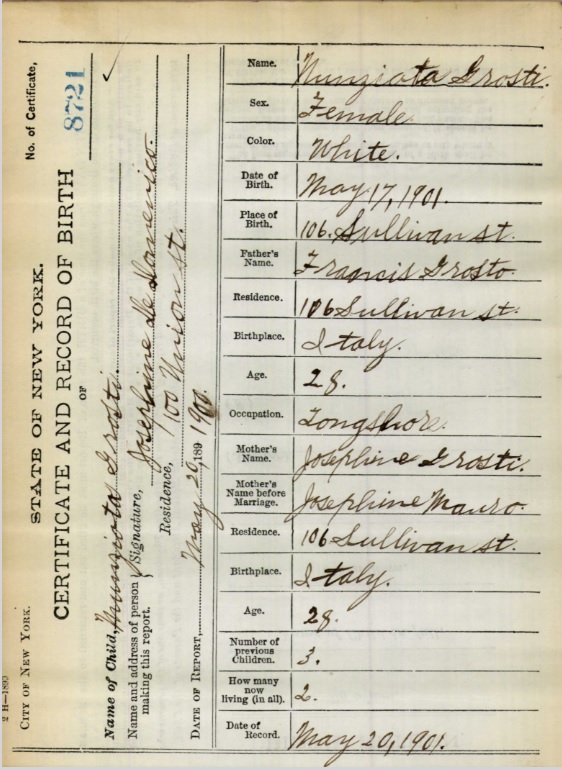 STATE OF NEW YORK.
No. of Certificate,
8721
CITY OF NEW YORK.
CERTIFICATE AND RECORD OF BIRTH
OF
Name of Child, Nunziata Grosti.
Name and address of person making this report.
Signature, Josephine de
Residence, 100 Union st.
DATE OF REPORT, May 20, 189 1901.
2 H—1893
Name. Nunziata Grosti.
Sex. Female
Color. White.
Date of Birth. May 17, 1901.
Place of Birth. 106. Sullivan st.
Father's Name. Francis Grosto.
Residence. 106 Sullivan st.
Birthplace. Italy.
Age. 28.
Occupation. Longshore
Mother's Name. Josephine Grosti.
Mother's Name before Marriage. Josephine Mauro.
Residence. 106 Sullivan st.
Birthplace. Italy.
Age. 28.
Number of previous Children. 3.
How many now living (in all). 2.
Date of Record. May 20, 1901.